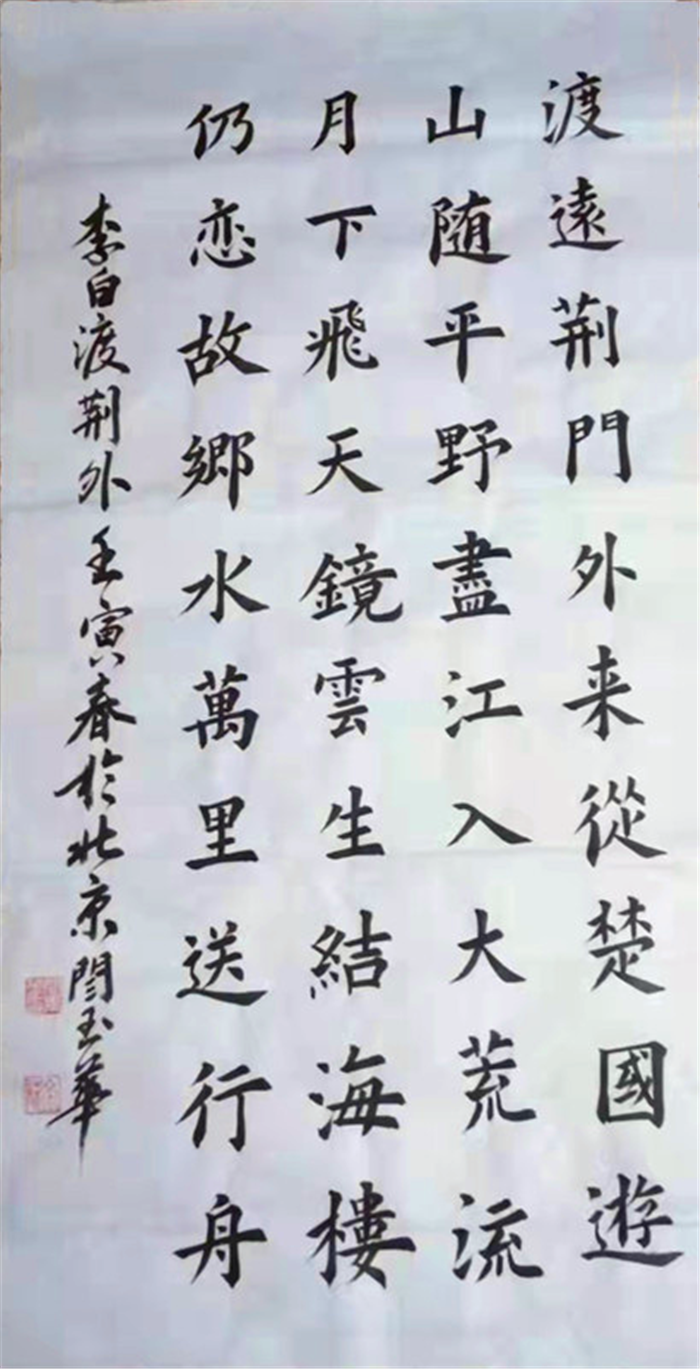 渡遠荆門外来從楚國遊
山随平野盡江入大荒流
月下飛天鏡雲生結海樓
仍恋故鄉水萬里送行舟
李白渡荆外壬寅春於北京閆玉華